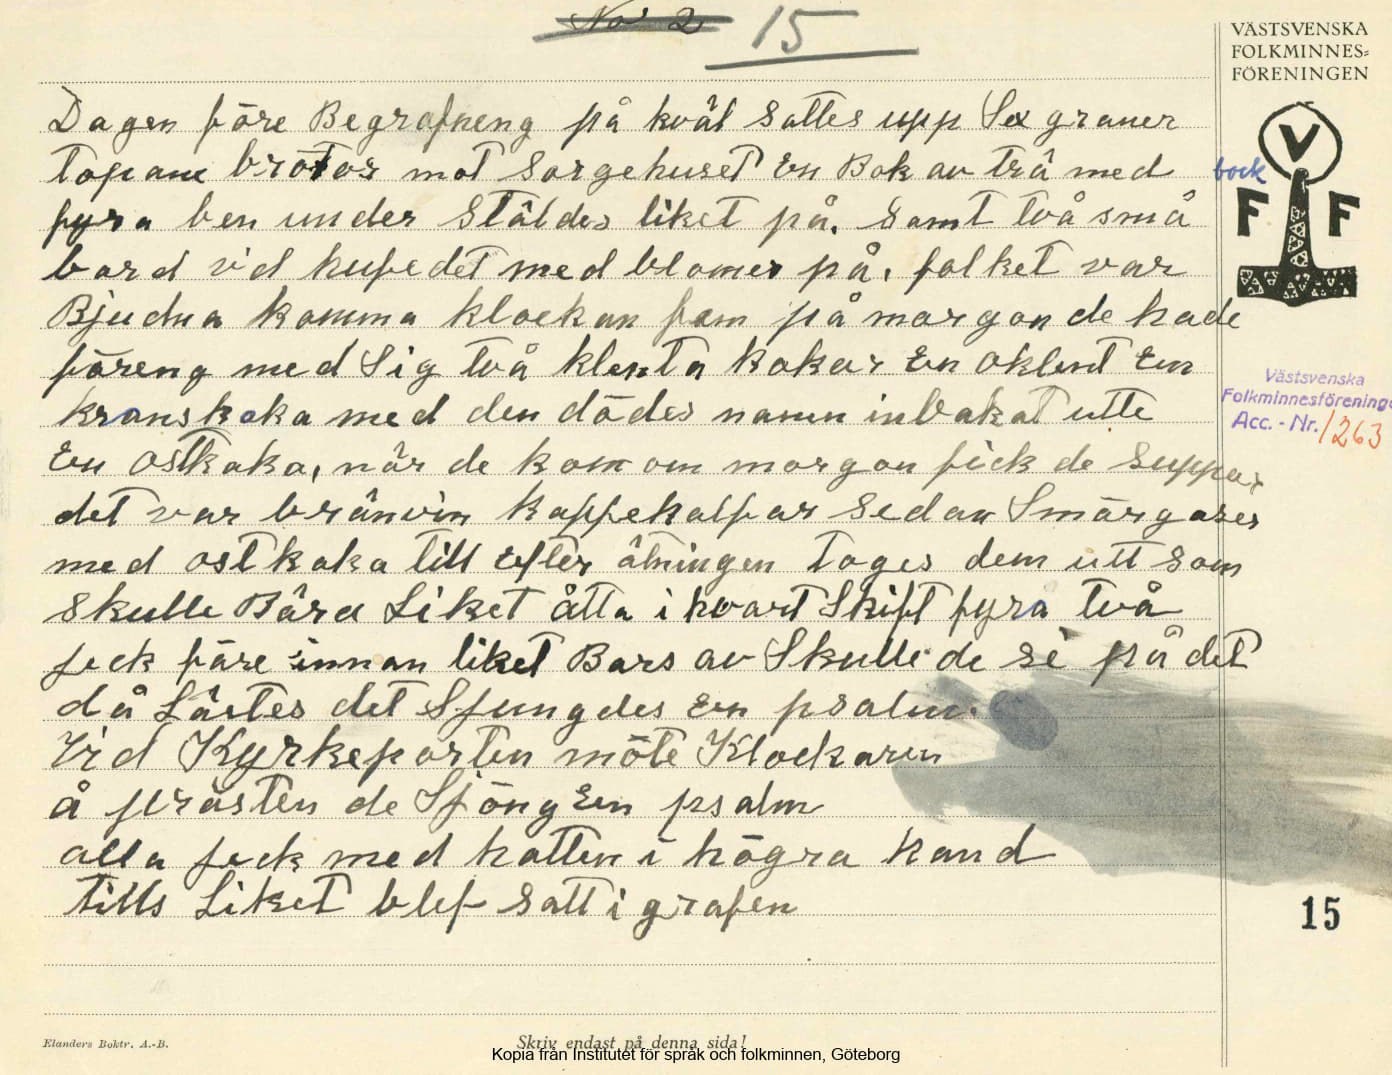 No 2 15
VÄSTSVENSKA
FOLKMINNES=
FÖRENINGEN
V
F F
Dagen före Begrafneng på kväl sattes upp Sex graner
topane brötos mot sorgehuset En Bok av trä med
bock
fyra ben under Stäldes liket på. Samt två små
bord vid hufvedet med blomer på. folket var
Bjudna komma klockan fam på morgon de hade
föreng med Sig två klenta kakor En oklent En
kranskaka med den dödes namn inbakat utte
En ostkaka, när de kom om morgon fick de suppar
det var bränvin kaffekalfar sedan Smärgaser
med ostkaka till Efter ätningen toges dem utt som
skulle Bära Liket åtta i hvart Skift fyra två
feck före innan liket Bars av Skulle de se på det
då Lästes det Sjungdes En psalm.
Vid Kyrkeporten möte Klockaren
å prästen de Sjöng En psalm
alla feck med hatten i högra hand
tills Liket blef satt i grafen
Västsvenska
Folkminnesförening
Acc. - Nr. 1263
15
Elanders Boktr. A.-B.
Skriv endast på denna sida!
Kopia från Institutet för språk och folkminnen, Göteborg